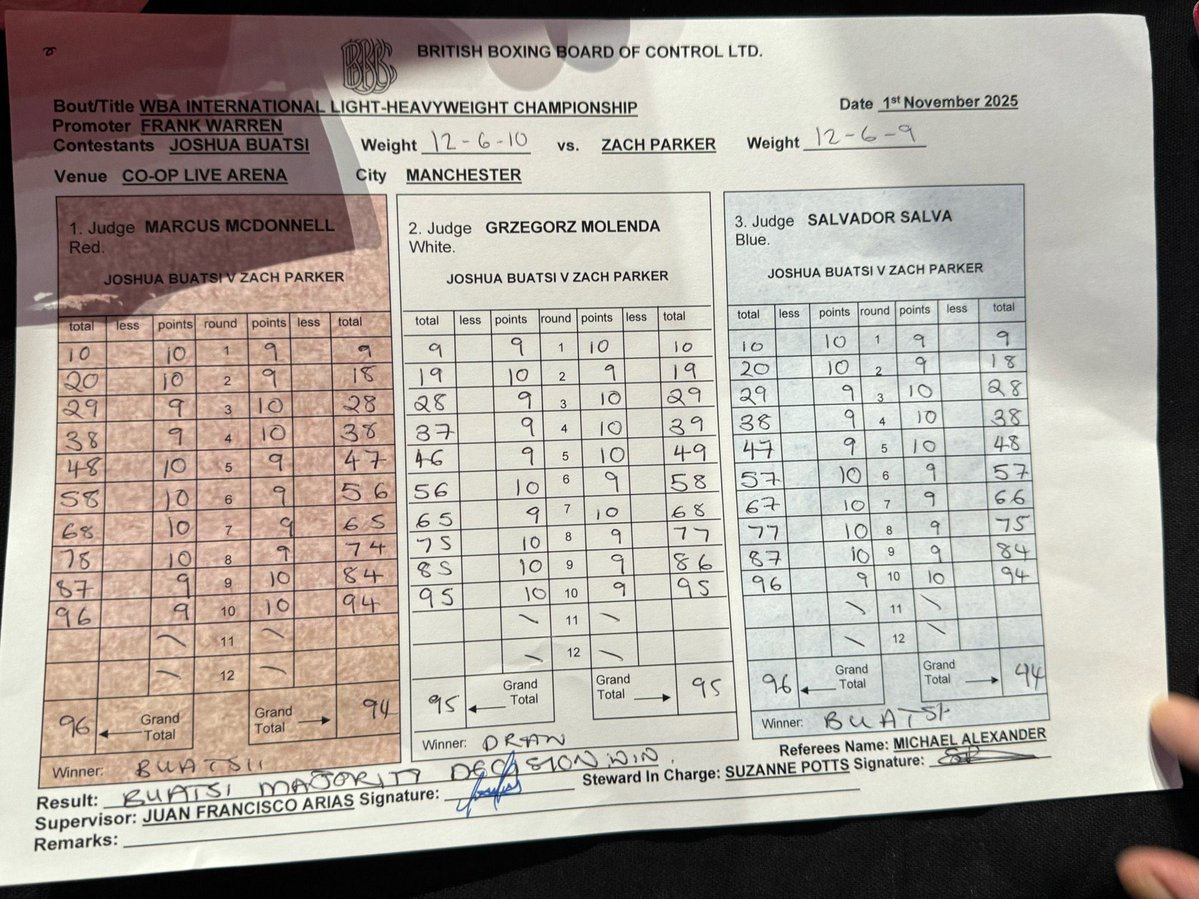 BBBC BRITISH BOXING BOARD OF CONTROL LTD.
Bout/Title WBA INTERNATIONAL LIGHT-HEAVYWEIGHT CHAMPIONSHIP Date 1st November 2025
Promoter FRANK WARREN
Contestants JOSHUA BUATSI Weight 12-6-10 vs. ZACH PARKER Weight 12-6-9
Venue CO-OP LIVE ARENA City MANCHESTER
1. Judge MARCUS MCDONNELL
Red.
JOSHUA BUATSI V ZACH PARKER
total less points round points less total
10 10 1 9 9
20 10 2 9 18
29 9 3 10 28
38 9 4 10 38
48 10 5 9 47
58 10 6 9 56
68 10 7 9 65
78 10 8 9 74
87 9 9 10 84
96 9 10 10 94
\ 11 \
\ 12 \
96 Grand Total Grand Total 94
Winner: BUATSII
2. Judge GRZEGORZ MOLENDA
White.
JOSHUA BUATSI V ZACH PARKER
total less points round points less total
9 9 1 10 10
19 10 2 9 19
28 9 3 10 29
37 9 4 10 39
46 9 5 10 49
56 10 6 9 58
65 9 7 10 68
75 10 8 9 77
85 10 9 9 86
95 10 10 9 95
\ 11 \
\ 12 \
95 Grand Total Grand Total 95
Winner: DRAW
3. Judge SALVADOR SALVA
Blue.
JOSHUA BUATSI V ZACH PARKER
total less points round points less total
10 10 1 9 9
20 10 2 9 18
29 9 3 10 28
38 9 4 10 38
47 9 5 10 48
57 10 6 9 57
67 10 7 9 66
77 10 8 9 75
87 10 9 9 84
96 9 10 10 94
\ 11 \
\ 12 \
96 Grand Total Grand Total 94
Winner: BUATSI
Referees Name: MICHAEL ALEXANDER
Result: BUATSI MAJORITY DECISION WIN.
Steward In Charge: SUZANNE POTTS Signature:
Supervisor: JUAN FRANCISCO ARIAS Signature:
Remarks: